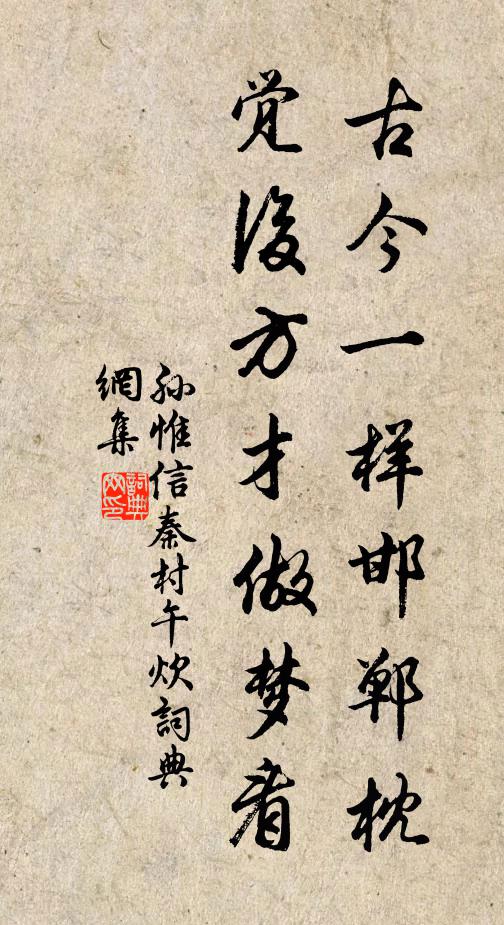 古今一样邯郸枕
觉後方才做梦看
孙惟信秦村午炊詞典
網集
詞典
网印